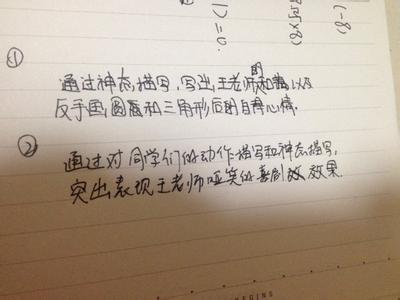 (-8)
1)=0.
①
通过神态描写,写出王老师的和蔼以及
反手画圆和三角形后的自得心情.
②
通过对同学们的动作描写和神态描写,
突出表现王老师哑笑的喜剧效果.